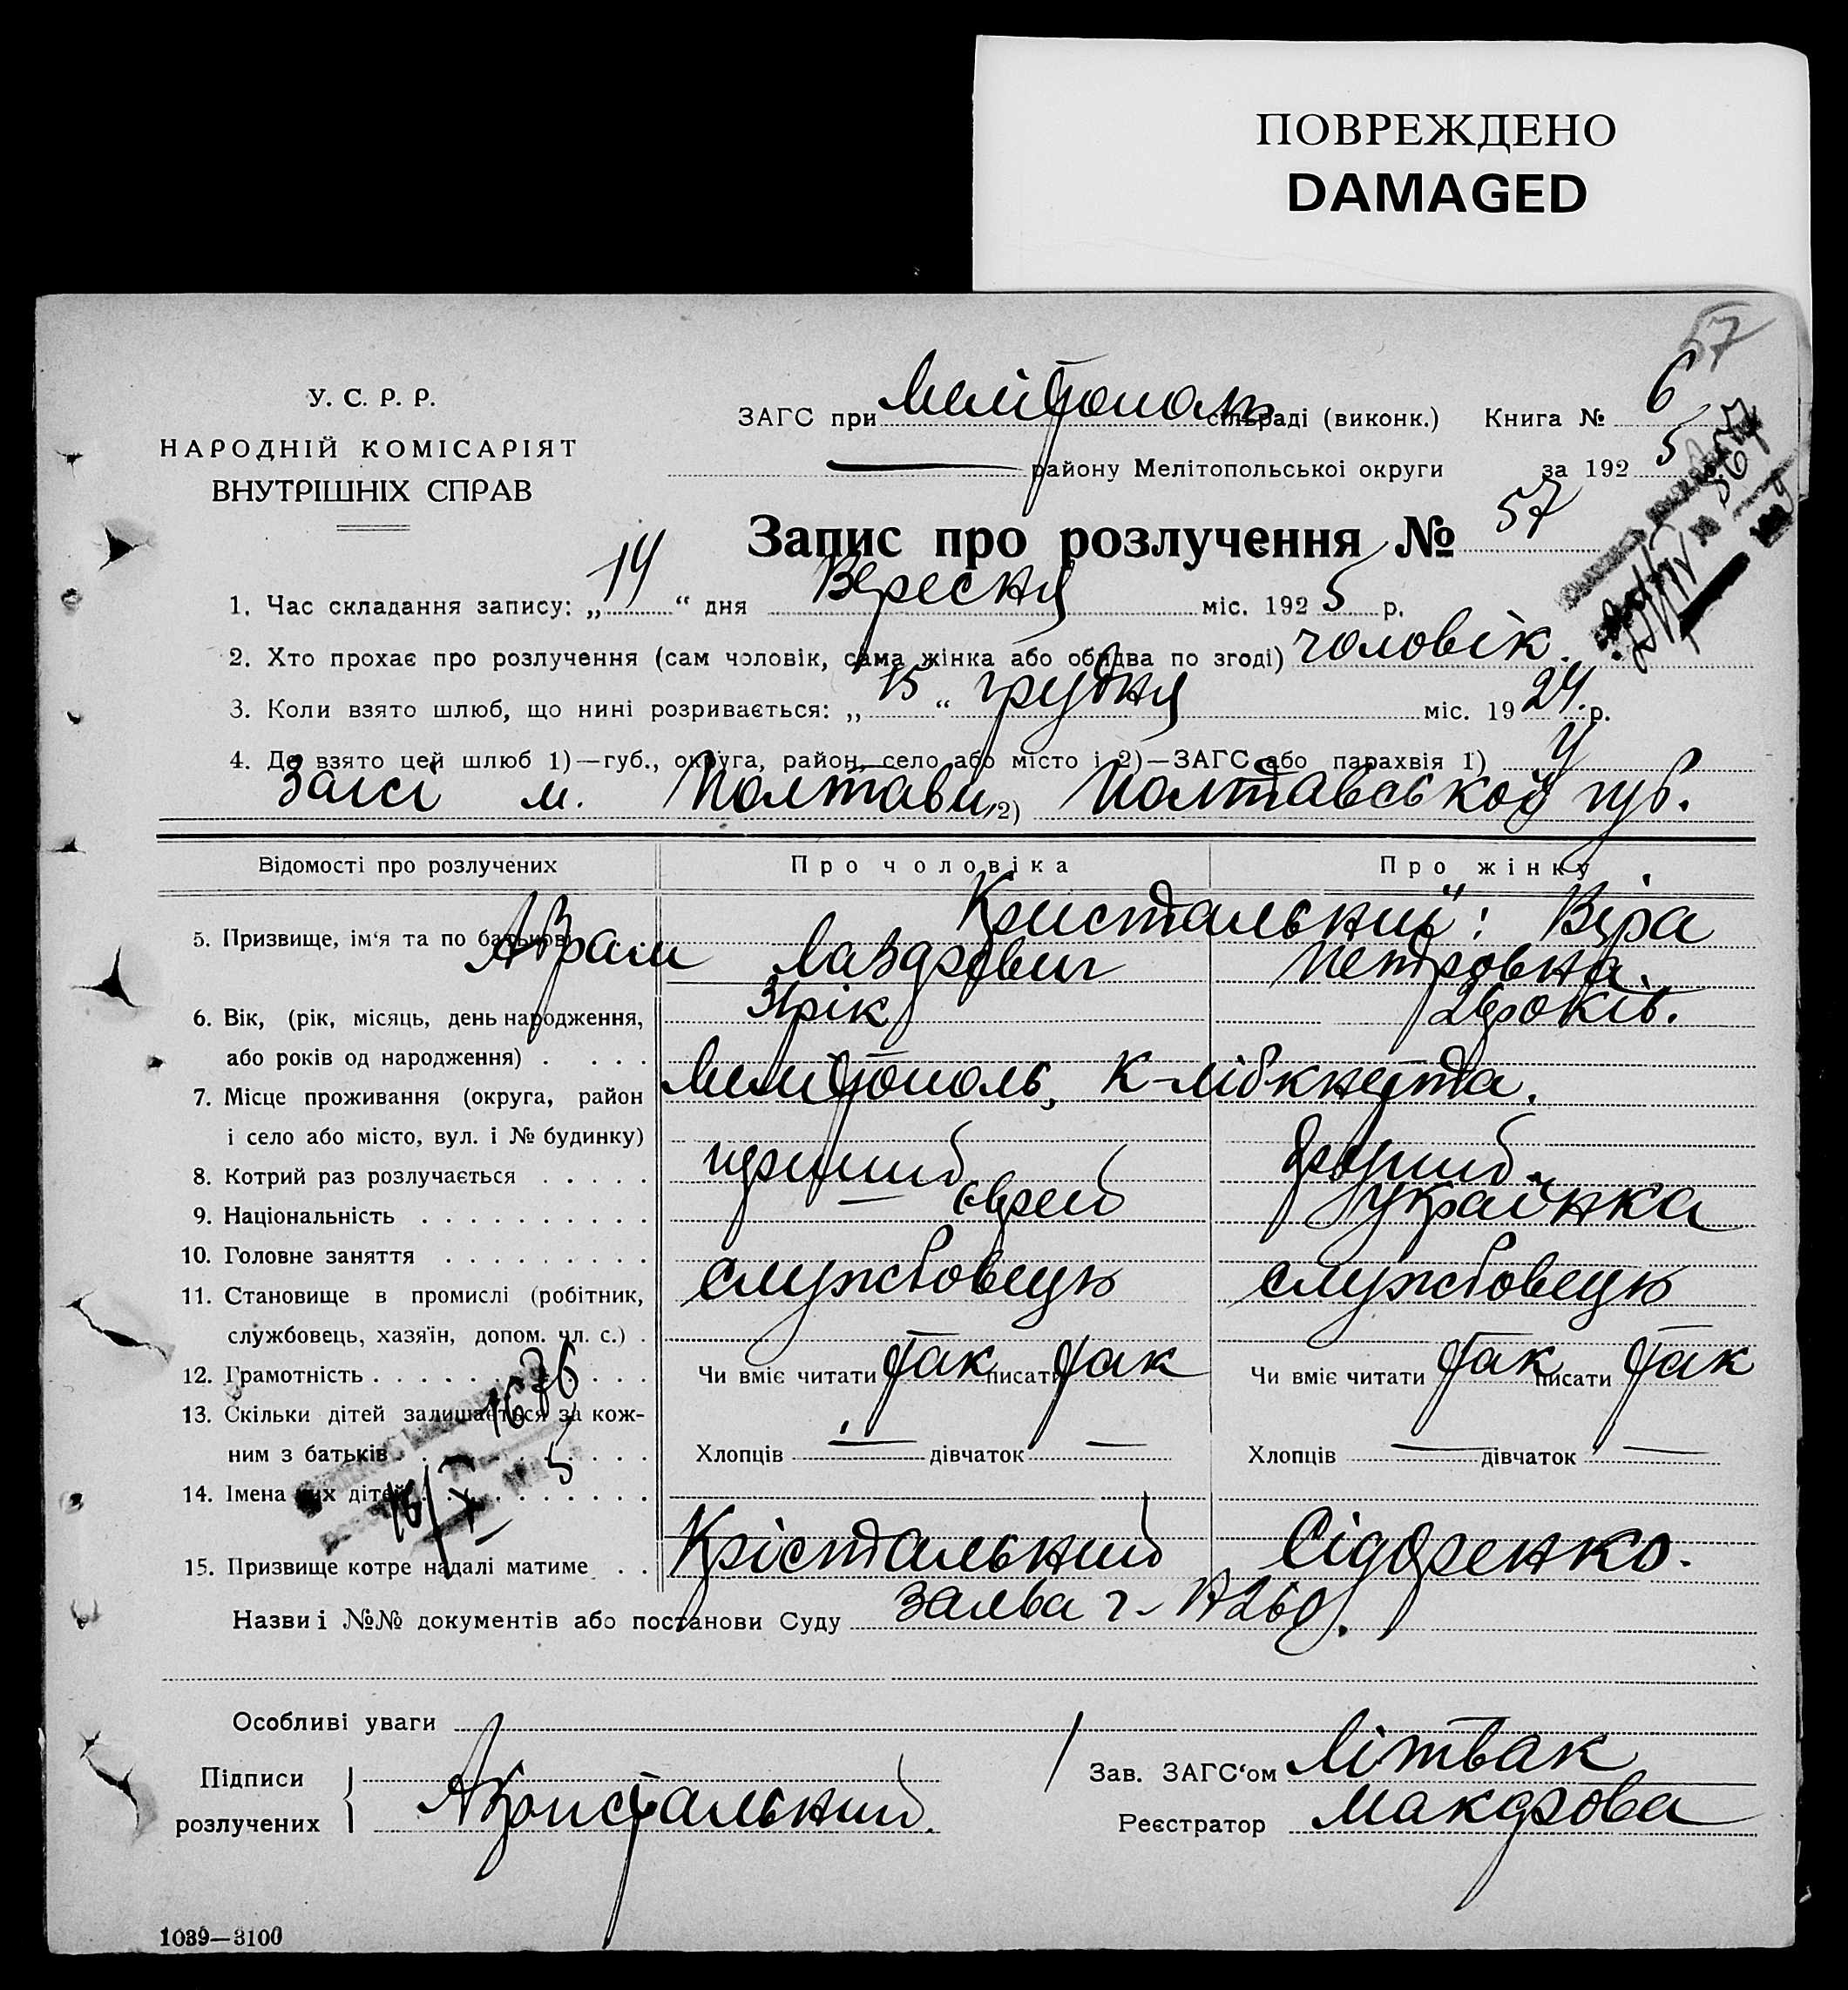 ПОВРЕЖДЕНО
DAMAGED
57
У. С. Р. Р.
НАРОДНІЙ КОМІСАРІЯТ
ВНУТРІШНІХ СПРАВ
ЗАГС при Мелітополь сільраді (виконк.) Книга № 6
— району Мелітопольської округи за 192 5
Запис про розлучення № 57
1. Час складання запису: „ 14 “ дня Вересня міс. 192 5 р.
2. Хто прохає про розлучення (сам чоловік, сама жінка або обидва по згоді) чоловік.
3. Коли взято шлюб, що нині розривається: „ 15 “ грудня міс. 19 24. р.
4. Де взято цей шлюб 1)—губ., округа, район, село або місто і 2)—ЗАГС або парахвія 1) у
Загсі м. Полтави 2) Полтавської губ.
Відомості про розлучених Про чоловіка Про жінку
5. Призвище, ім‘я та по батькові Кристальний: Віра
Абрам Лазарович Петровна.
6. Вік, (рік, місяць, день народження, 31 рік 26 років.
або років од народження)
7. Місце проживання (округа, район Мелітополь, К-лібкнехта.
і село або місто, вул. і № будинку)
8. Котрий раз розлучається перший другий.
9. Національність єврей українка
10. Головне заняття
11. Становище в промислі (робітник, службовець службовець
службовець, хазяїн, допом. чл. с.)
12. Грамотність Чи вміє читати так писати так Чи вміє читати так писати так
13. Скільки дітей залишається за кож-
ним з батьків Хлопців — дівчаток — Хлопців — дівчаток —
14. Імена цих дітей
1676
16/X 5
15. Призвище котре надалі матиме Крістальний Сідоренко.
Назви і №№ документів або постанови Суду заява г. №260.
Особливі уваги
Підписи розлучених АКристальний.
Зав. ЗАГС‘ом Літвак
Реєстратор Макарова
1039—3100